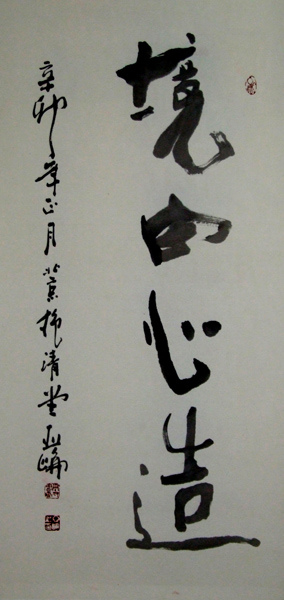 境由心造
辛卯年正月 京 清堂